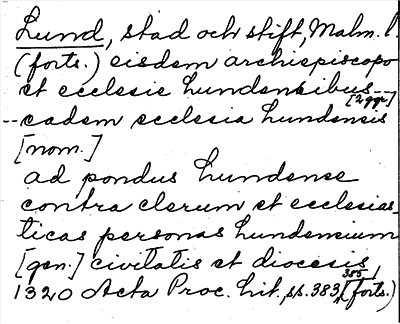 Lund, stad och stift, Malm. l.
(forts.) eisdem archiepiscopo
et ecclesie Lundensibus --
[2 ggr]
-- eadem ecclesia Lundensis
[nom.]
ad pondus Lundense
contra clerum et ecclesias-
ticas personas Lundensium
[gen.] civitatis et diocesis
385
1320 Acta Proc. Lit., s. 383, (forts.)